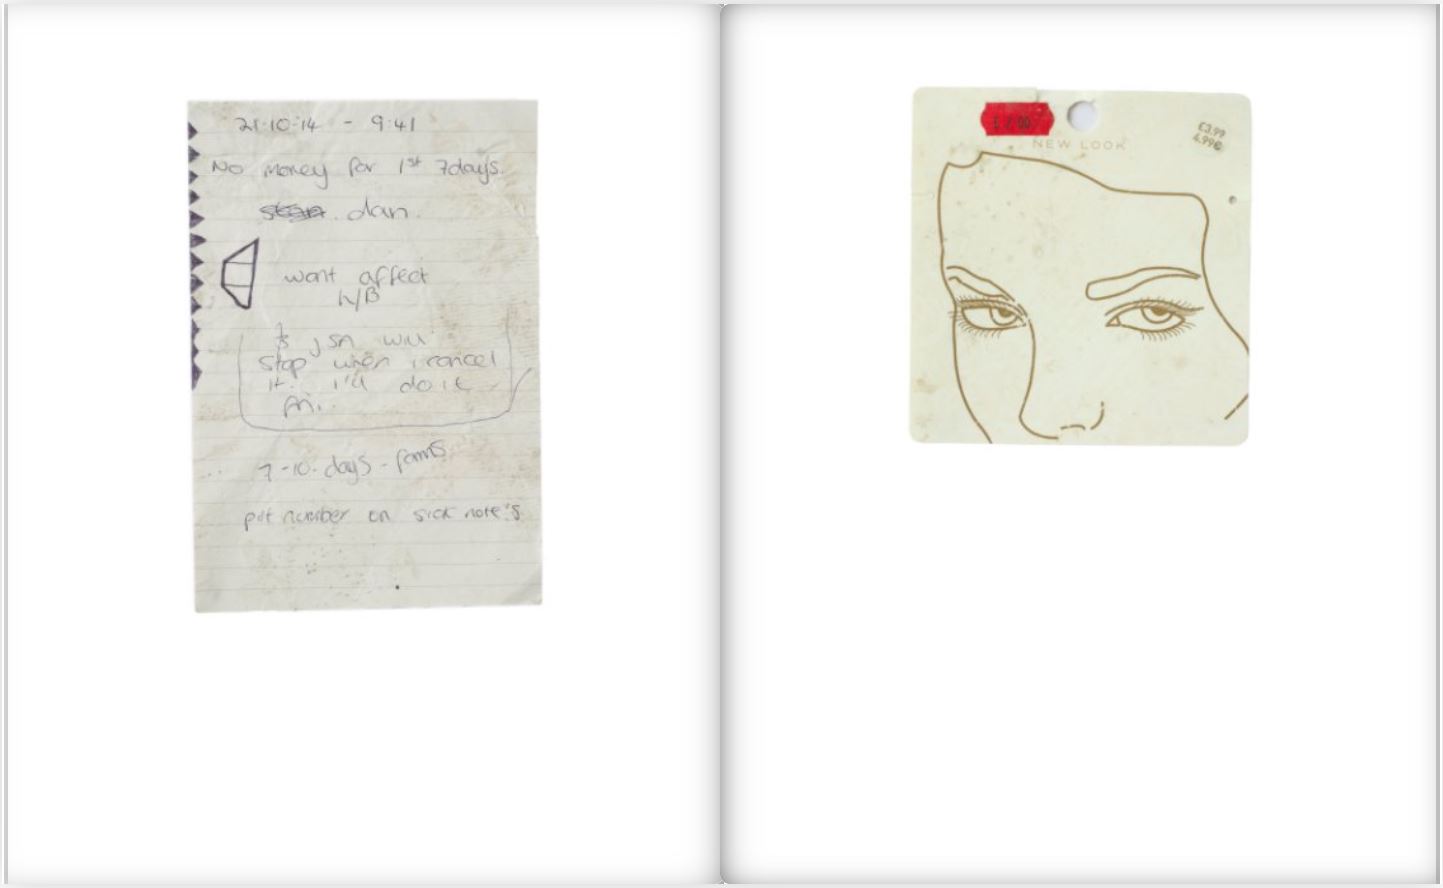 21·10·14 - 9:41
No money for 1st 7days.
dan.
wont affect
H/B
JSA will
stop when i cancel
it. i'll do it
7-10. days - forms
put number on sick note's
£7.00
NEW LOOK
£3.99
4.99€